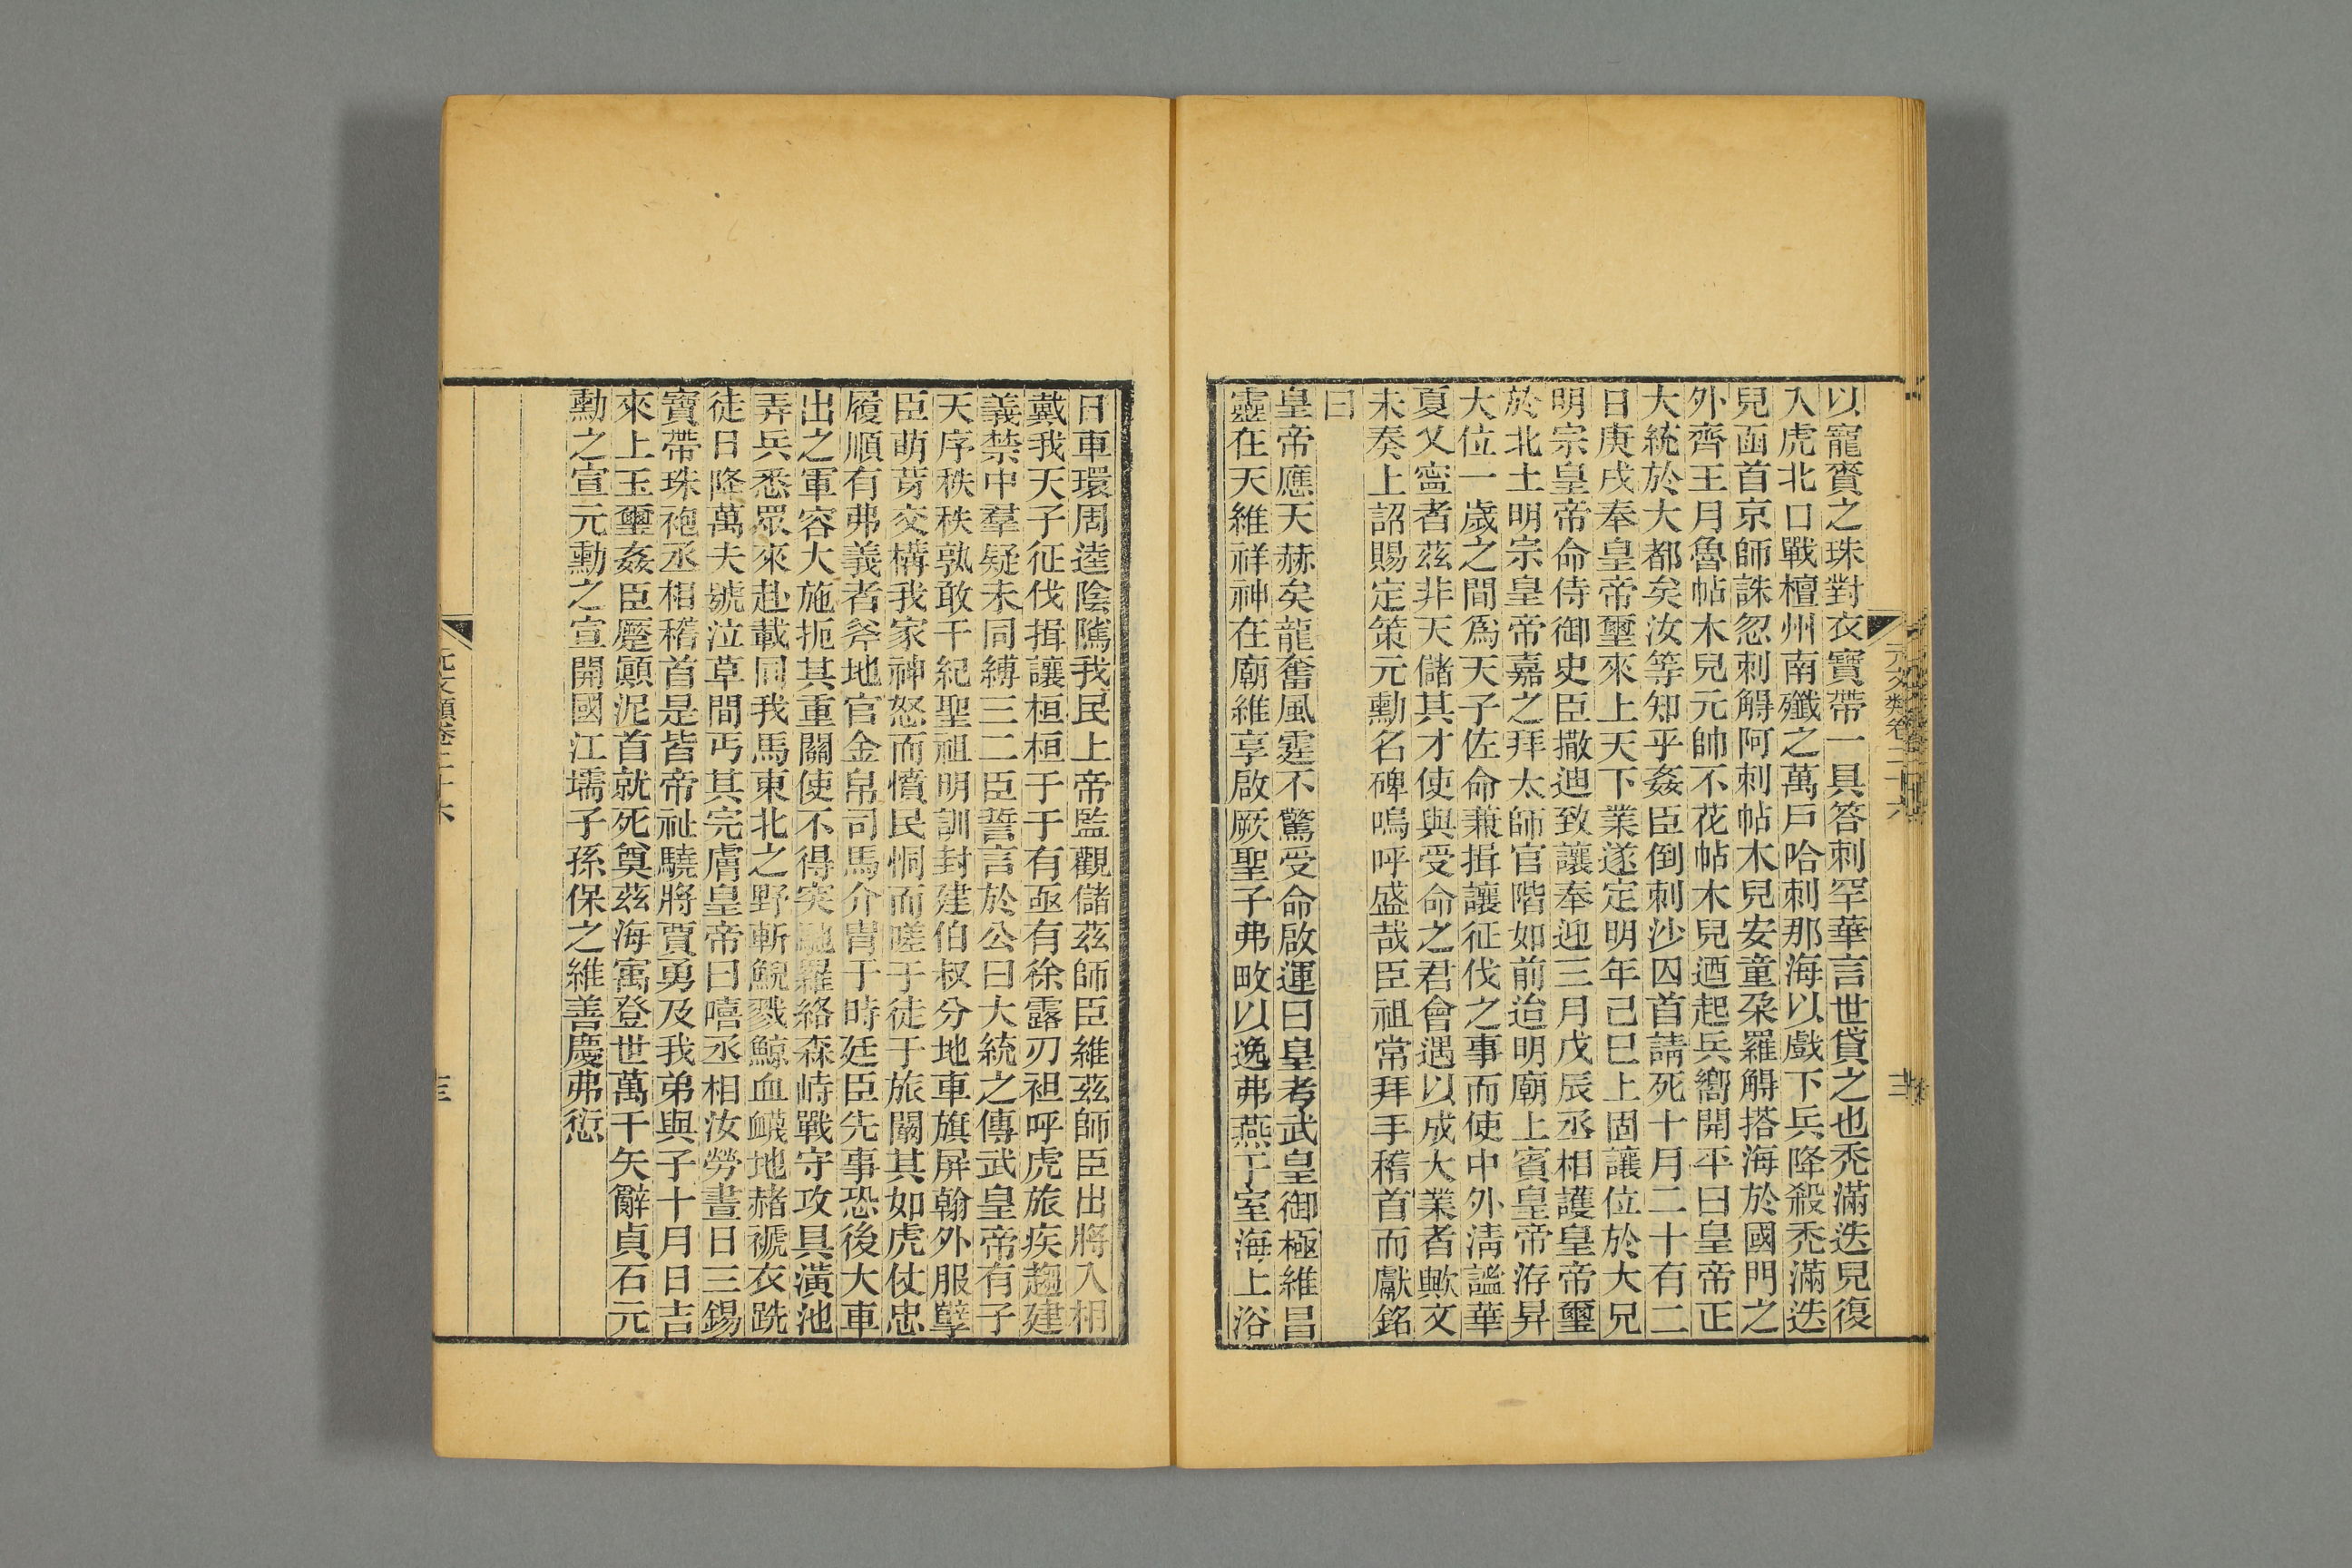 以寵賚之珠對衣寶帶一具答刺罕華言世貸之也禿滿迭兒復
入虎北口戰檀州南殲之萬戶哈刺那海以戲下兵降殺禿滿迭
兒函首京師誅忽刺䚟阿刺帖木兒安童朶羅䚟搭海於國門之
外齊王月魯帖木兒元帥不花帖木兒迺起兵嚮開平曰皇帝正
大統於大都矣汝等知乎姦臣倒刺沙囚首請死十月二十有二
日庚戌奉皇帝璽來上天下業遂定明年己巳上固讓位於大兄
明宗皇帝命侍御史臣撒迪致讓奉迎三月戊辰丞相護皇帝璽
於北土明宗皇帝嘉之拜太師官階如前迨明廟上賓皇帝洊昇
大位一歲之間爲天子佐命兼揖讓征伐之事而使中外淸謐華
夏乂寧者茲非天儲其才使與受命之君會遇以成大業者歟文
未奏上詔賜定策元勳名碑嗚呼盛哉臣祖常拜手稽首而獻銘
曰
皇帝應天赫矣龍奮風霆不驚受命啟運曰皇考武皇御極維昌
靈在天維祥神在廟維享啟厥聖子弗畋以逸弗燕于室海上浴
元文類卷二十六
日車環周逵陰隲我民上帝監觀儲茲師臣維茲師臣出將入相
戴我天子征伐揖讓桓桓于于有亟有徐露刃袒呼虎旅疾趨建
義禁中羣疑未同縛三二臣誓言於公曰大統之傳武皇帝有子
天序秩秩孰敢干紀聖祖明訓封建伯叔分地車旗屏翰外服孽
臣萌芽交構我家神怒而憤民恫而嗟于徒于旅闞其如虎仗忠
履順有弗義者斧地官金帛司馬介胄于時廷臣先事恐後大車
出之軍容大施扼其重關使不得突馳羅絡森峙戰守攻具潢池
弄兵悉眾來赴載同我馬東北之野斬鯢戮鯨血衊地赭褫衣跣
徒日降萬夫號泣草間丐其完膚皇帝曰嘻丞相汝勞晝日三錫
寶帶珠袍丞相稽首是皆帝祉驍將賈勇及我弟與子十月日吉
來上玉璽姦臣蹙顚泥首就死奠茲海寓登世萬千矢辭貞石元
勳之宣元勳之宣開國江壖子孫保之維善慶弗愆